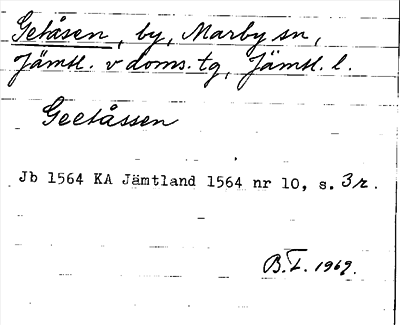 Getåsen, by, Marby sn,
Jämtl. v doms. tg, Jämtl. l.
Geetåssen
Jb 1564 KA Jämtland 1564 nr 10, s. 3r.
B.L. 1969.